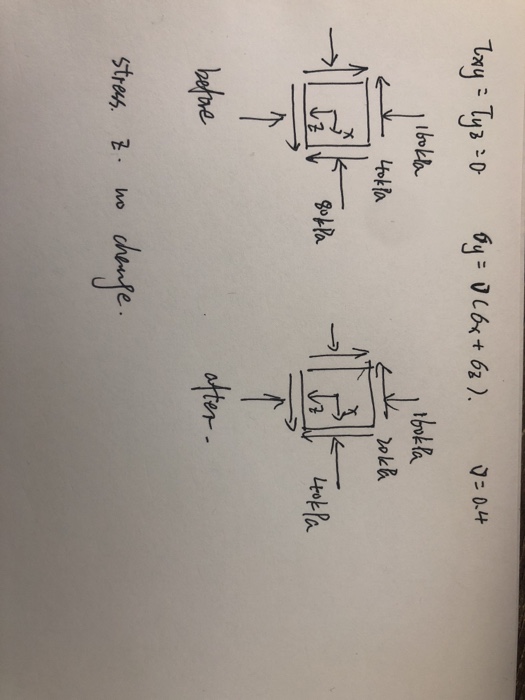 τxy = τyz = 0 σy = ν(σx + σz). ν = 0.4
160kPa
40kPa
80kPa
x
z
before
160kPa
20kPa
40kPa
x
z
after.
stress. z. no change.